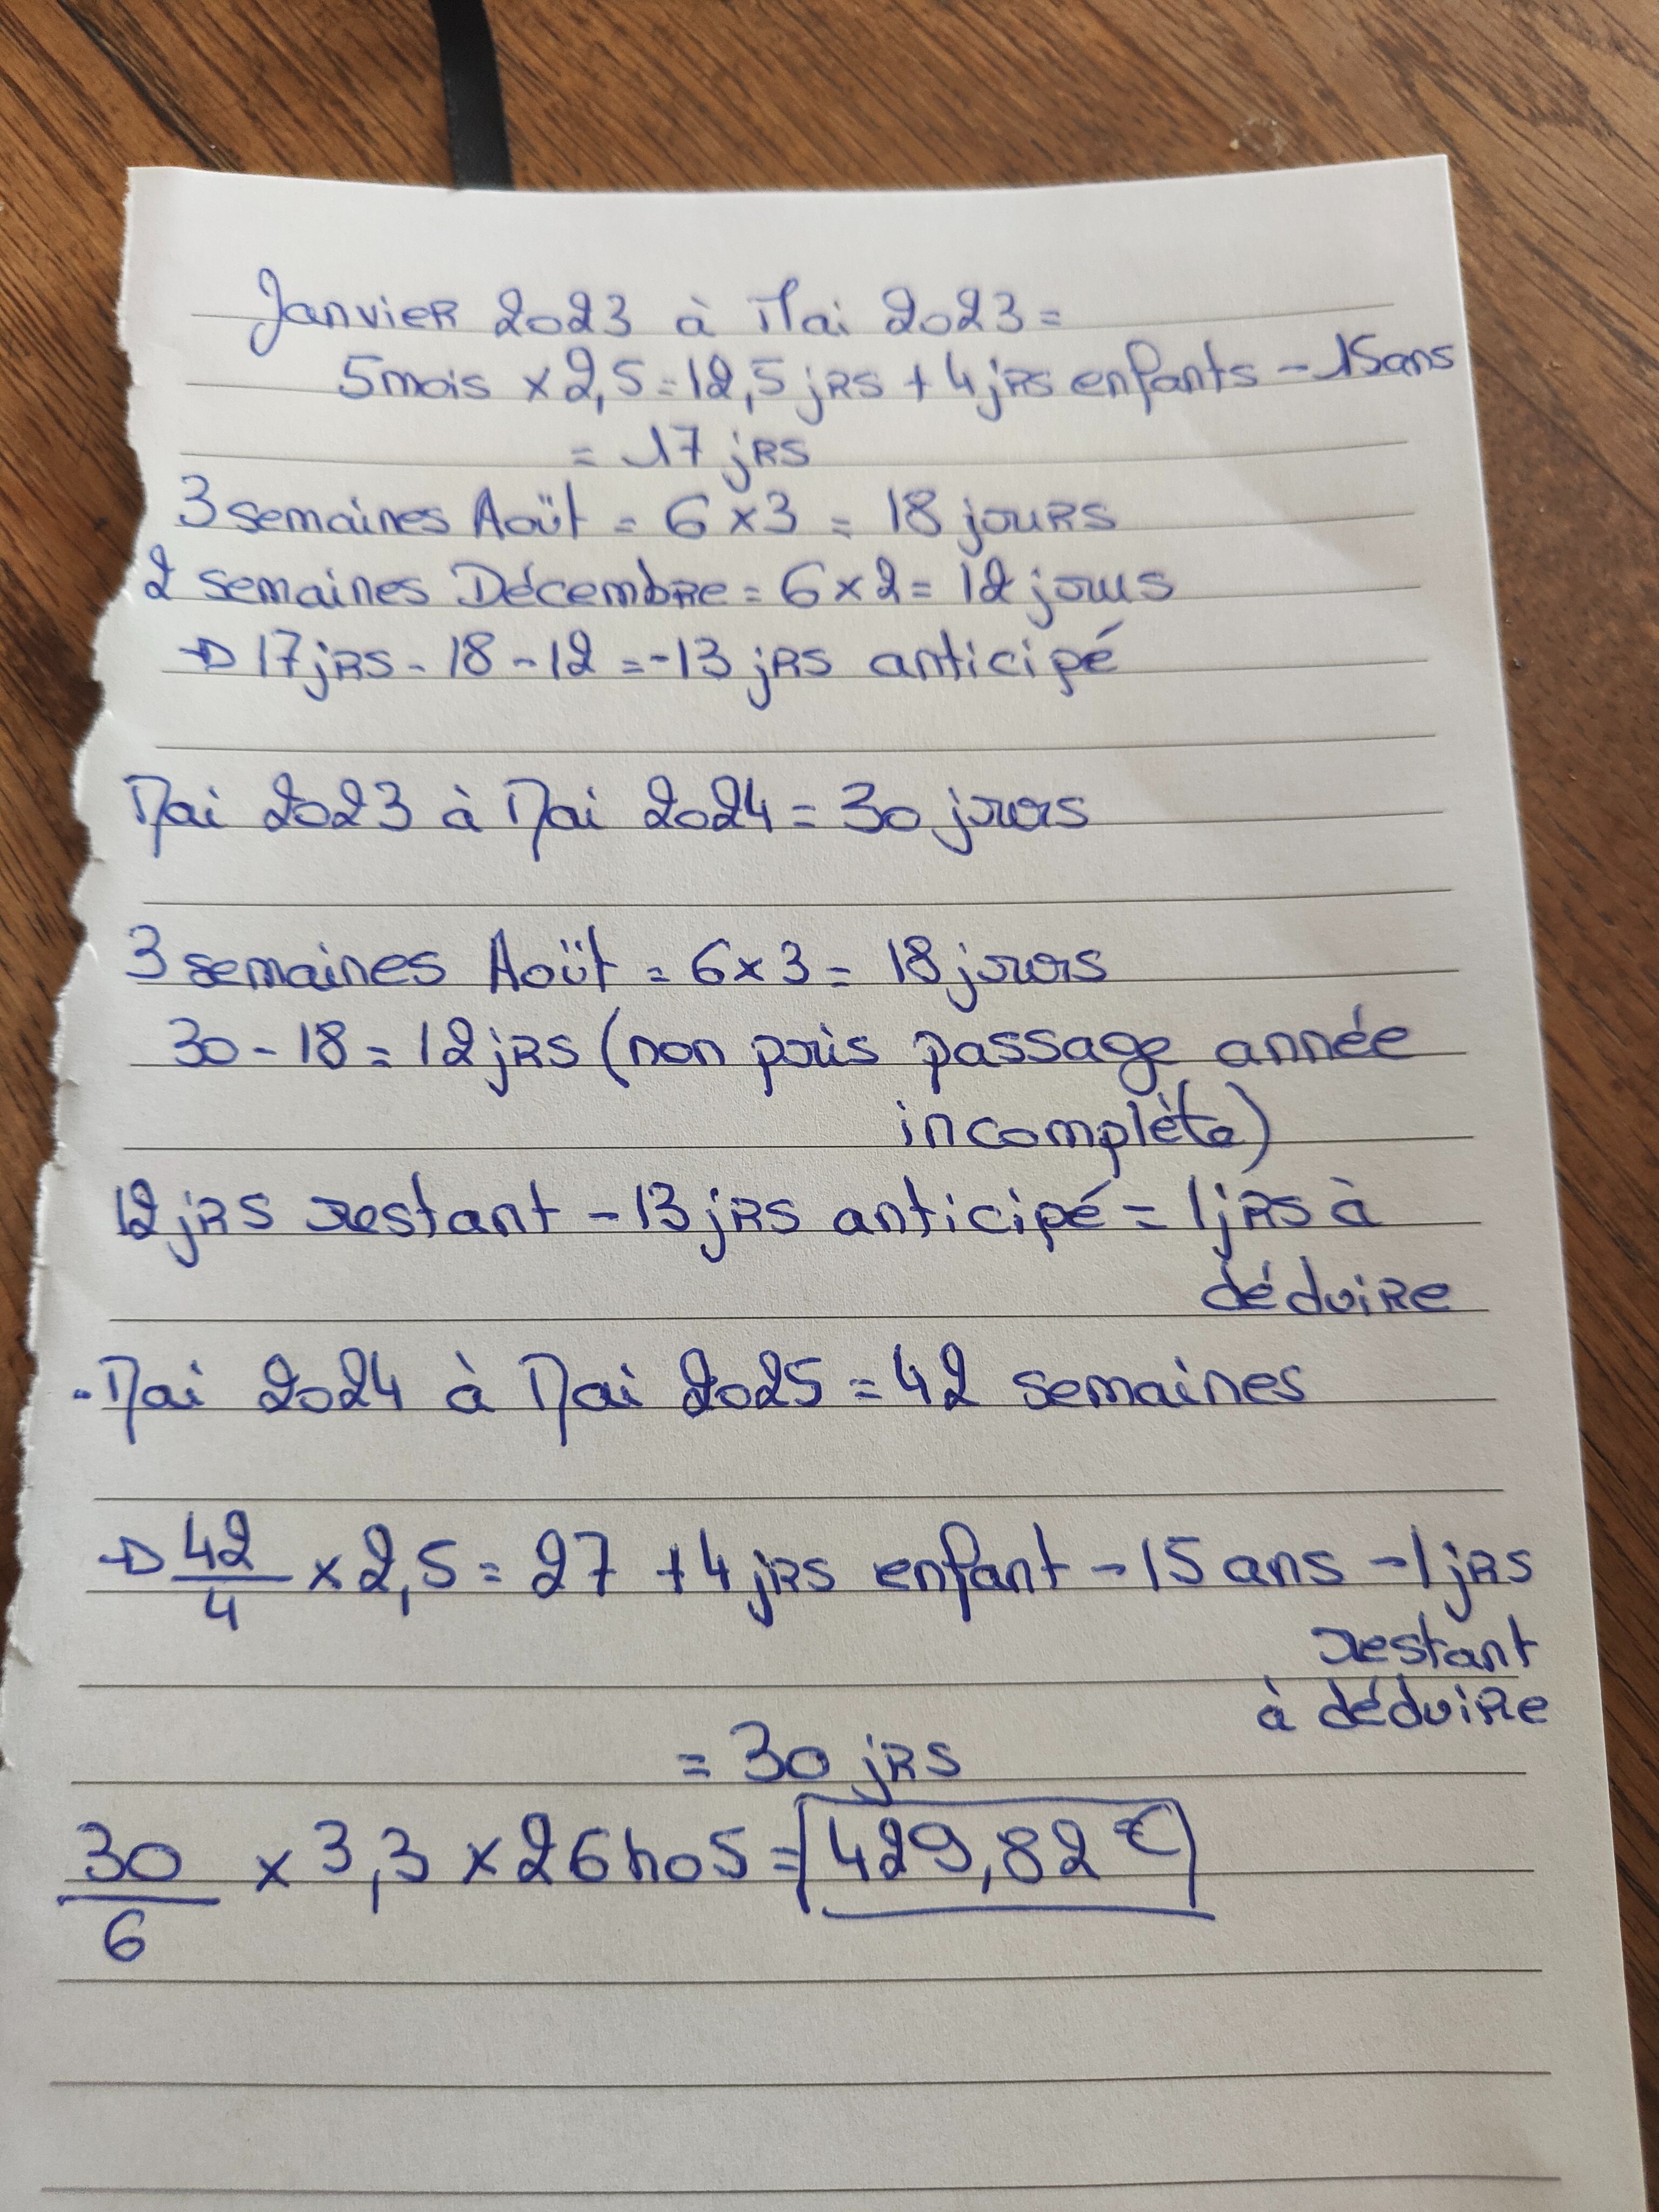 Janvier 2023 à Mai 2023 =
5mois x 2,5 = 12,5 jrs + 4 jrs enfants - 15ans
= 17 jrs
3 semaines Août = 6 x 3 = 18 jours
2 semaines Décembre = 6 x 2 = 12 jours
→ 17 jrs - 18 - 12 = -13 jrs anticipé
Mai 2023 à Mai 2024 = 30 jours
3 semaines Août = 6 x 3 = 18 jours
30 - 18 = 12 jrs (non pris passage année
incomplète)
12 jrs restant - 13 jrs anticipé = 1 jrs à
déduire
- Mai 2024 à Mai 2025 = 42 semaines
→ 42/4 x 2,5 = 27 + 4 jrs enfant - 15 ans - 1 jrs
restant
à déduire
= 30 jrs
30/6 x 3,3 x 26h05 = 429,82 €